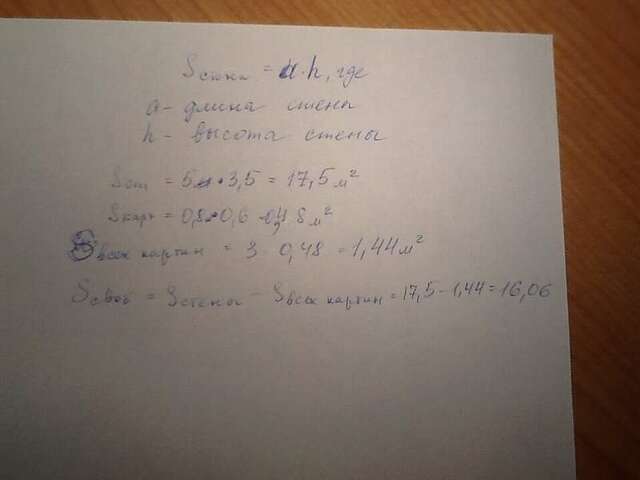 Sстены = a·h, где
a - длина стены
h - высота стены
Sст = 5 · 3,5 = 17,5 м²
Sкарт = 0,8·0,6 = 0,48 м²
Sвсех картин = 3 · 0,48 = 1,44 м²
Sсвоб = Sстены - Sвсех картин = 17,5 - 1,44 = 16,06